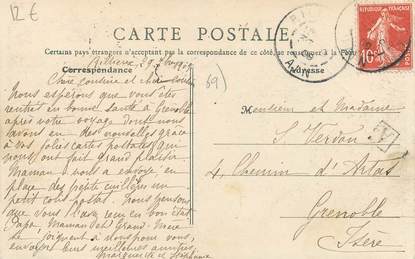 12 €
CARTE POSTALE
Certains pays étrangers n'acceptant pas la correspondance de ce côté, se renseigner à la Poste
RÉPUBLIQUE FRANÇAISE
10
Correspondance
Adresse
69)
Chère cousine et
Nous espérons que vous êtes
rentrés en bonne santé à Grenoble
après votre voyage dont nous
avons eu des nouvelles grâce
à vos jolies cartes postales qui
nous ont fait grand plaisir.
Maman vous a envoyé en
place des petites cuillères un
petit colis postal. Nous pensons
que vous l'avez reçu en bon état
Papa, Maman et Grand-Mère
se joignent à nous pour vous
envoyer leurs meilleures amitiés
Marguerite et
Monsieur et Madame
S. Verdon
4 Chemin d'Artas
Grenoble
Isère